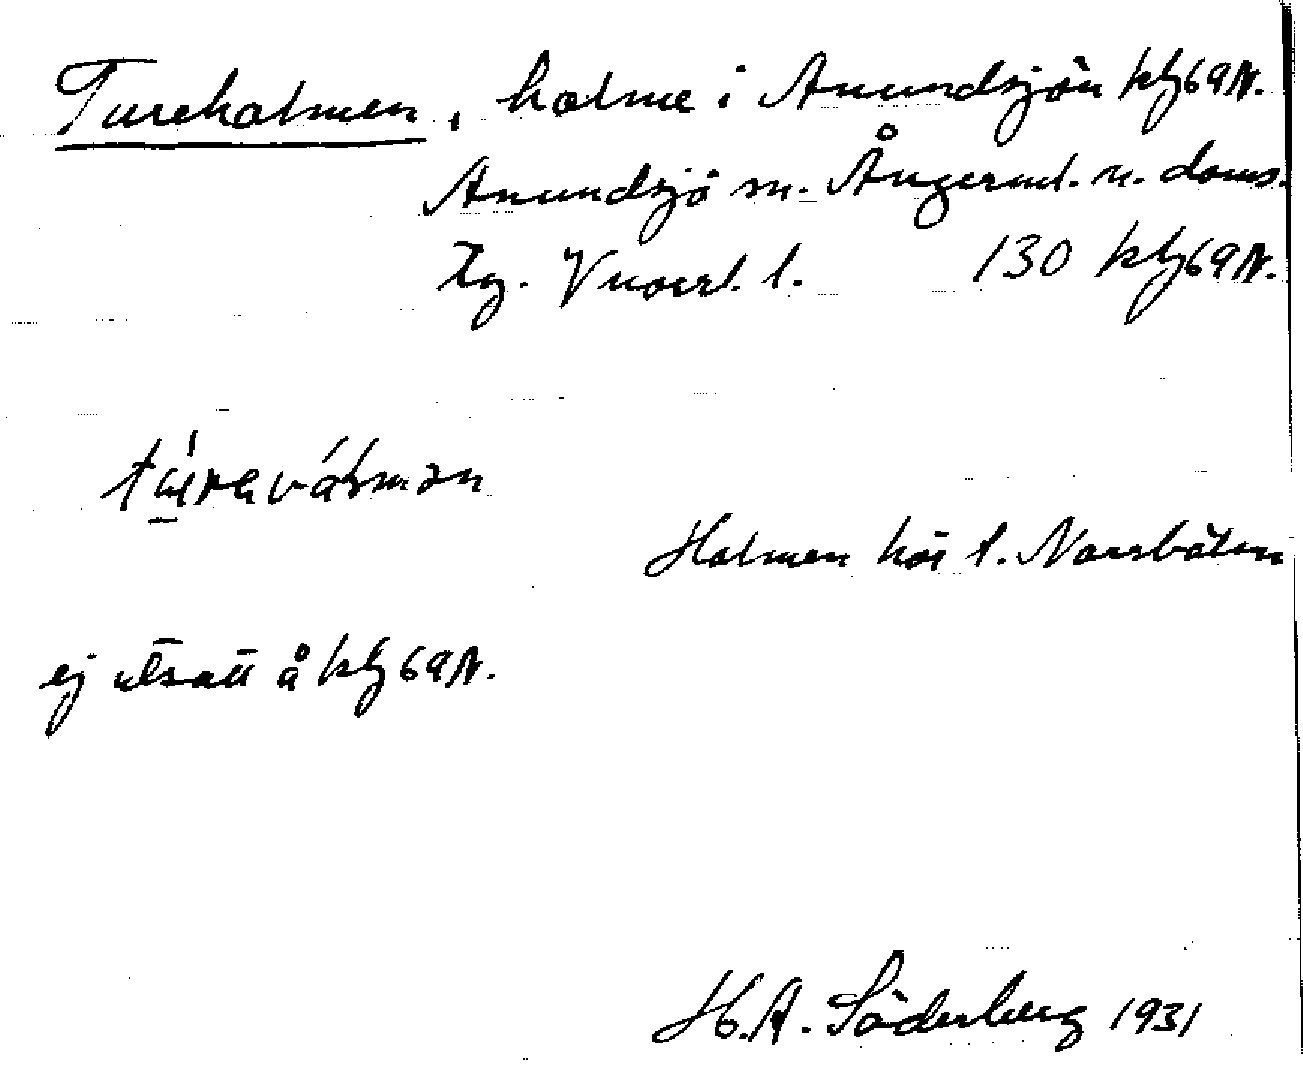 Tureholmen, holme i Anundsjön kbl 69 N.
Anundsjö sn. Ångerml. n. doms.
Tg. Vnorrl. l. 130 kbl 69 N.
Holmen hör t. Norrböle
ej utsatt å kbl 69 N.
H. A. Söderberg 1931